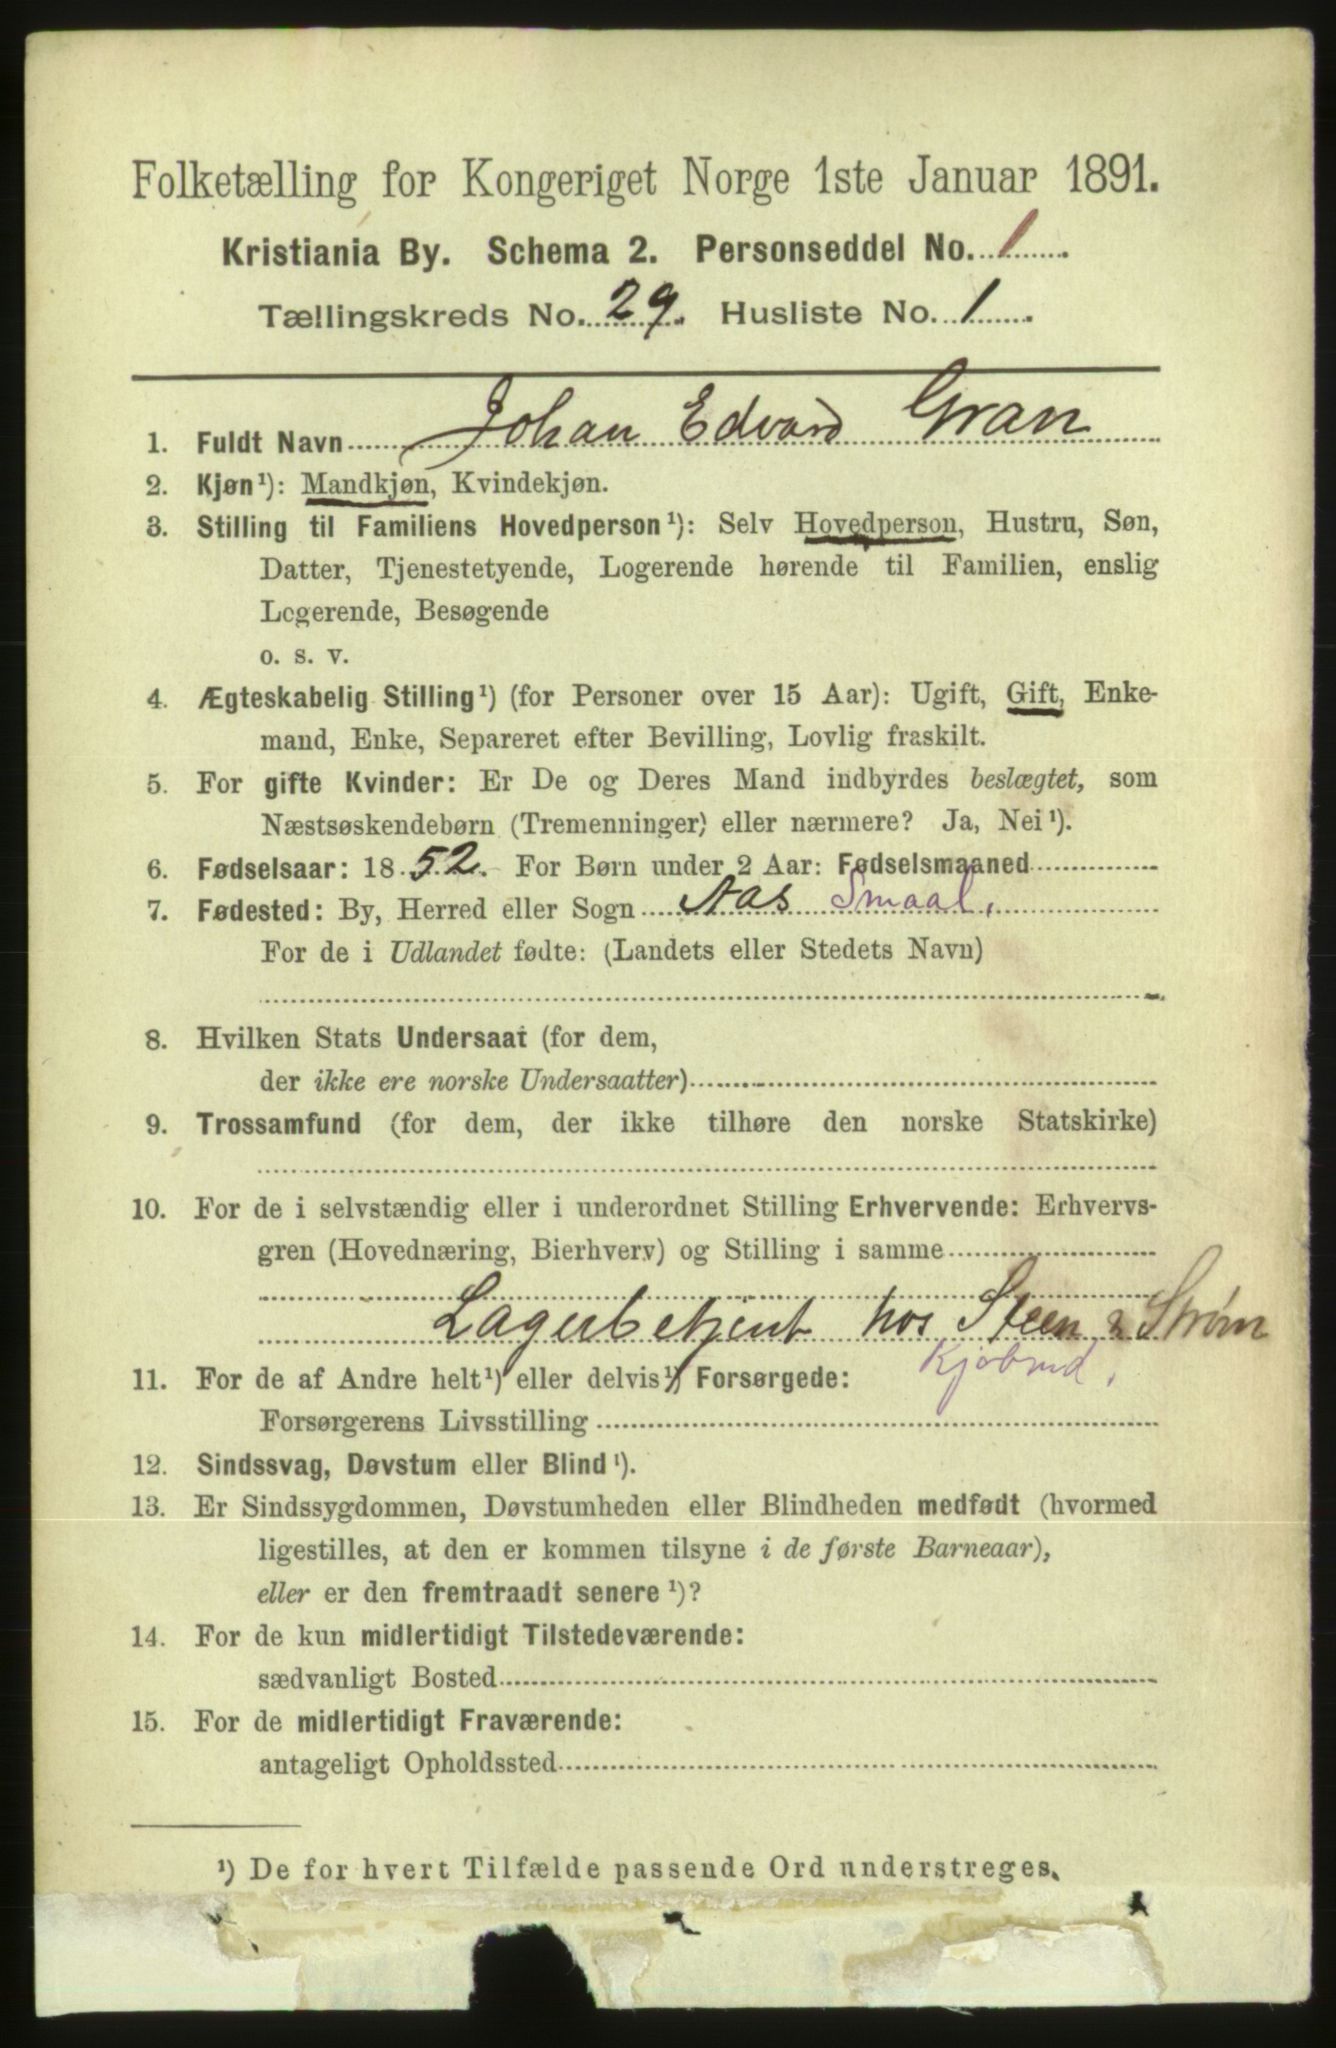 Folketælling for Kongeriget Norge 1ste Januar 1891.
Kristiania By. Schema 2. Personseddel No. 1
Tællingskreds No. 29. Husliste No. 1
1. Fuldt Navn Johan Edvard Gran
2. Kjøn¹): Mandkjøn, Kvindekjøn.
3. Stilling til Familiens Hovedperson¹): Selv Hovedperson, Hustru, Søn,
Datter, Tjenestetyende, Logerende hørende til Familien, enslig
Logerende, Besøgende
o. s. v.
4. Ægteskabelig Stilling¹) (for Personer over 15 Aar): Ugift, Gift, Enke-
mand, Enke, Separeret efter Bevilling, Lovlig fraskilt.
5. For gifte Kvinder: Er De og Deres Mand indbyrdes beslægtet, som
Næstsøskendebørn (Tremenninger) eller nærmere? Ja, Nei¹).
6. Fødselsaar: 1852. For Børn under 2 Aar: Fødselsmaaned
7. Fødested: By, Herred eller Sogn Aas Smaal.
For de i Udlandet fødte: (Landets eller Stedets Navn)
8. Hvilken Stats Undersaat (for dem,
der ikke ere norske Undersaatter)
9. Trossamfund (for dem, der ikke tilhøre den norske Statskirke)
10. For de i selvstændig eller i underordnet Stilling Erhvervende: Erhvervs-
gren (Hovednæring, Bierhverv) og Stilling i samme
Lagerbetjent hos Steen & Strøm
Kjøbmd.
11. For de af Andre helt¹) eller delvis¹) Forsørgede:
Forsørgerens Livsstilling
12. Sindssvag, Døvstum eller Blind¹).
13. Er Sindssygdommen, Døvstumheden eller Blindheden medfødt (hvormed
ligestilles, at den er kommen tilsyne i de første Barneaar),
eller er den fremtraadt senere¹)?
14. For de kun midlertidigt Tilstedeværende:
sædvanligt Bosted
15. For de midlertidigt Fraværende:
antageligt Opholdssted
¹) De for hvert Tilfælde passende Ord understreges.